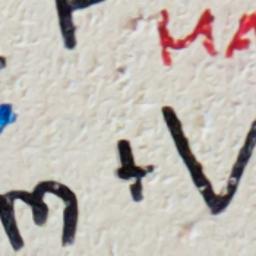 MA
m + V